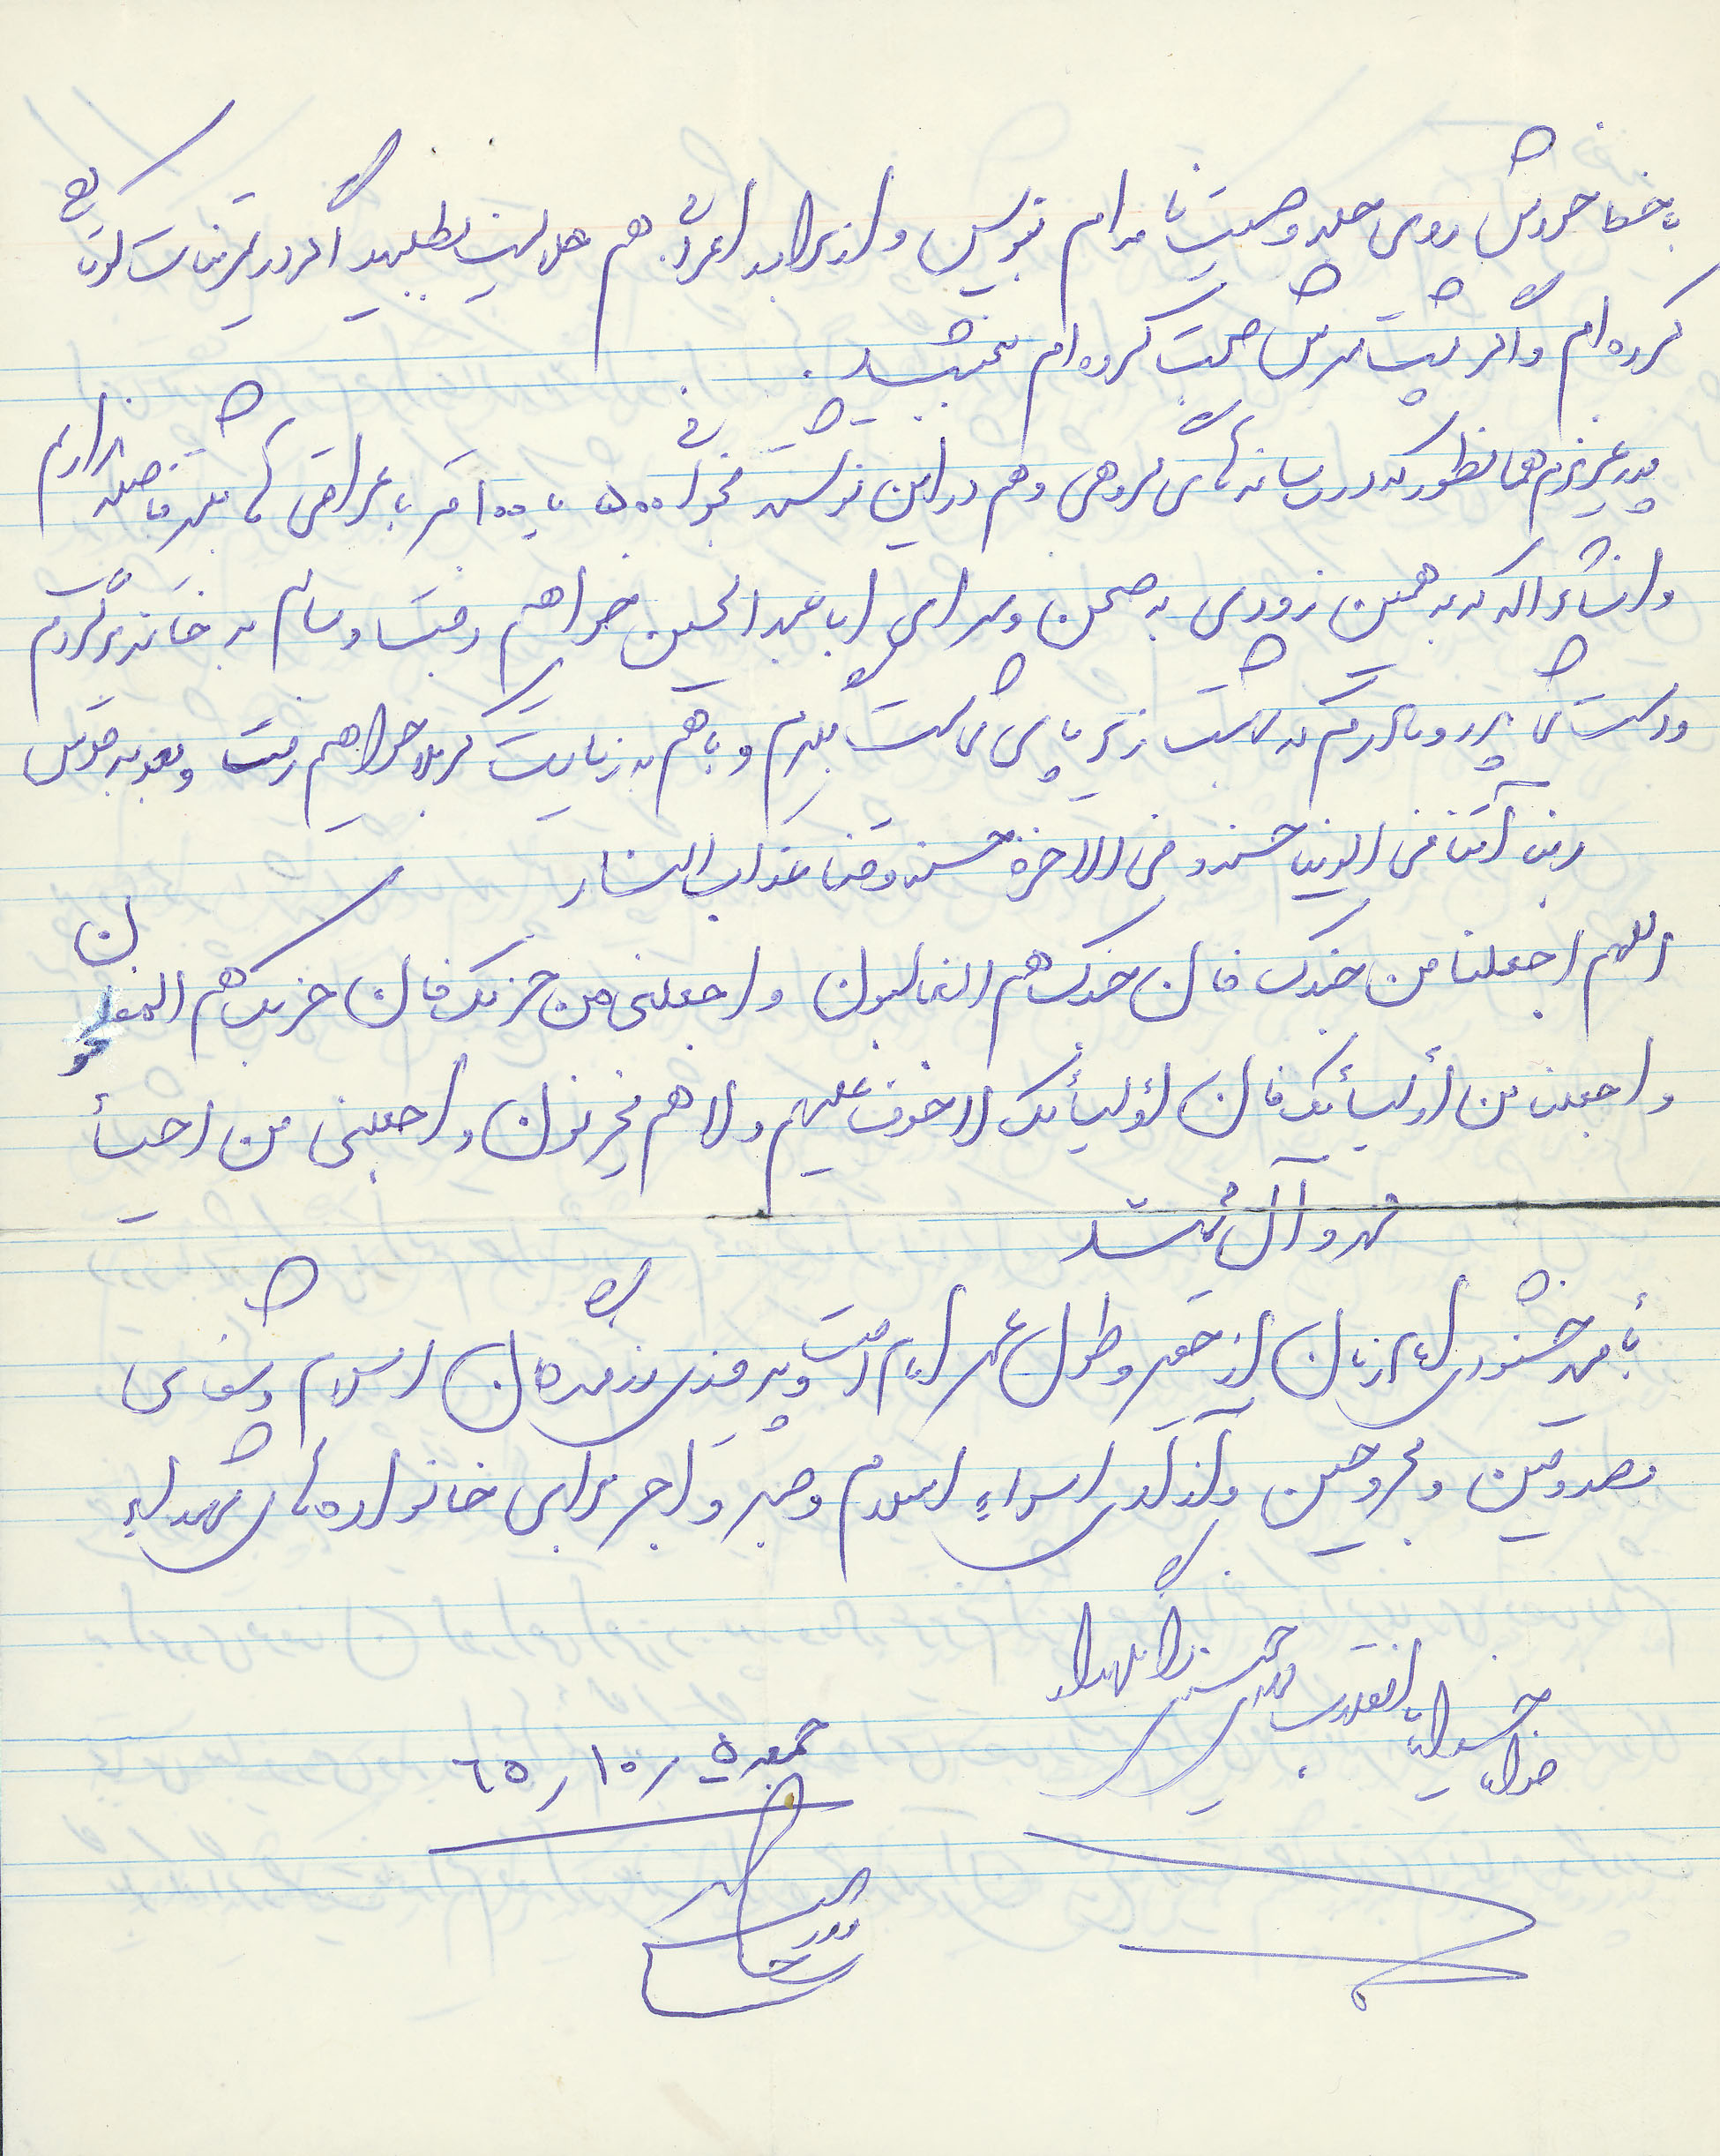 با خط خودش روی جلد وصیت نامه ام بنویس و از برادر اعرابی هم حلالیت بطلبید اگر در تمرینات کوتاهی
کرده ام و اگر پشت سرش صحبت کرده ام ببخشید.
پدر عزیزم همانطور که در رسانه های گروهی و هم در این نوشته میخوانی ۵۰۰ یا ۱۰۰ متر با عراقی ها بیشتر فاصله نداریم
و انشاءالله که به همین زودی به صحن و سرای اباعبدالحسین خواهیم رفت و سالم به خانه برگردم
و دست پدر و مادرم که بهشت زیر پای شماست بگیرم و با هم به زیارت کربلا خواهیم رفت و بعد به قدس
ربنا آتنا فی الدنیا حسنه و فی الاخرة حسنه وقنا عذاب النار
اللهم اجعلنا من جندک فان جندک هم الغالبون واجعلنی من حزبک فان حزبک هم المفلحون
واجعلنا من أولیائک فان أولیائک لاخوف علیهم ولا هم یحزنون واجعلنی من احباء
محمد و آل محمد
بأمید خشنودی امام زمان از حقیر و طول عمر امام امت و پیروزی رزمندگان اسلام و شفای
مصدومین و مجروحین و آزادی اسراء اسلام و صبر و اجر برای خانواده های شهداء
خدایا خدایا تا انقلاب مهدی خمینی را نگهدار
جمعه ۵/۱۰/۶۵